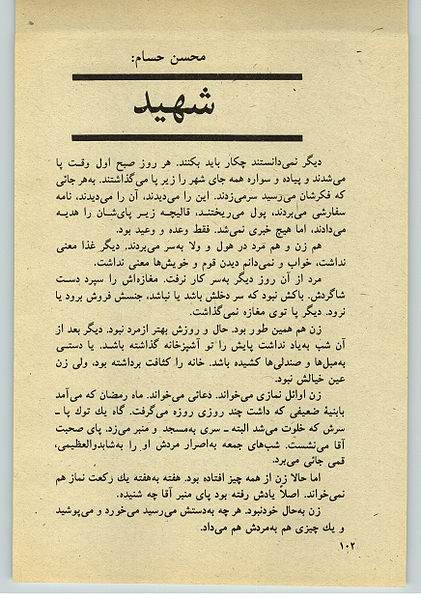 محسن حسام:
شهید
دیگر نمی‌دانستند چکار باید بکنند. هر روز صبح اول وقت پا
می‌شدند و پیاده و سواره همه جای شهر را زیر پا می‌گذاشتند. به‌هر جائی
که فکرشان می‌رسید سرمی‌زدند. این را می‌دیدند، آن را می‌دیدند، نامه
سفارشی می‌بردند، پول می‌ریختند، قالیچه زیر پای‌شان را هدیه
می‌دادند، اما هیچ خبری نمی‌شد. فقط وعده و وعید بود.
هم زن و هم مرد در هول و ولا به‌سر می‌بردند. دیگر غذا معنی
نداشت، خواب و نمی‌دانم دیدن قوم و خویش‌ها معنی نداشت.
مرد از آن روز دیگر به‌سر کار نرفت. مغازه‌اش را سپرد دست
شاگردش. باکش نبود که سر دخلش باشد یا نباشد، جنسش فروش برود یا
نرود. دیگر پا توی مغازه نمی‌گذاشت.
زن هم همین طور بود. حال و روزش بهتر ازمرد نبود. دیگر بعد از
آن شب به‌یاد نداشت پایش را تو آشپزخانه گذاشته باشد. یا دستی
به‌مبل‌ها و صندلی‌ها کشیده باشد. خانه را کثافت برداشته بود، ولی زن
عین خیالش نبود.
زن اوائل نمازی می‌خواند. دعائی می‌خواند. ماه رمضان که می‌آمد
بابنیهٔ ضعیفی که داشت چند روزی روزه می‌گرفت. گاه یك توك پا ـ
سرش که خلوت می‌شد البته ـ سری به‌مسجد و منبر می‌زد. پای صحبت
آقا می‌نشست. شب‌های جمعه به‌اصرار مردش او را به‌شابدوالعظیمی،
قمی جائی می‌برد.
اما حالا زن از همه چیز افتاده بود. هفته به‌هفته یك رکعت نماز هم
نمی‌خواند. اصلاً یادش رفته بود پای منبر آقا چه شنیده.
زن به‌حال خودنبود. هر چه به‌دستش می‌رسید می‌خورد و می‌پوشید
و یك چیزی هم به‌مردش هم می‌داد.
۱۰۲